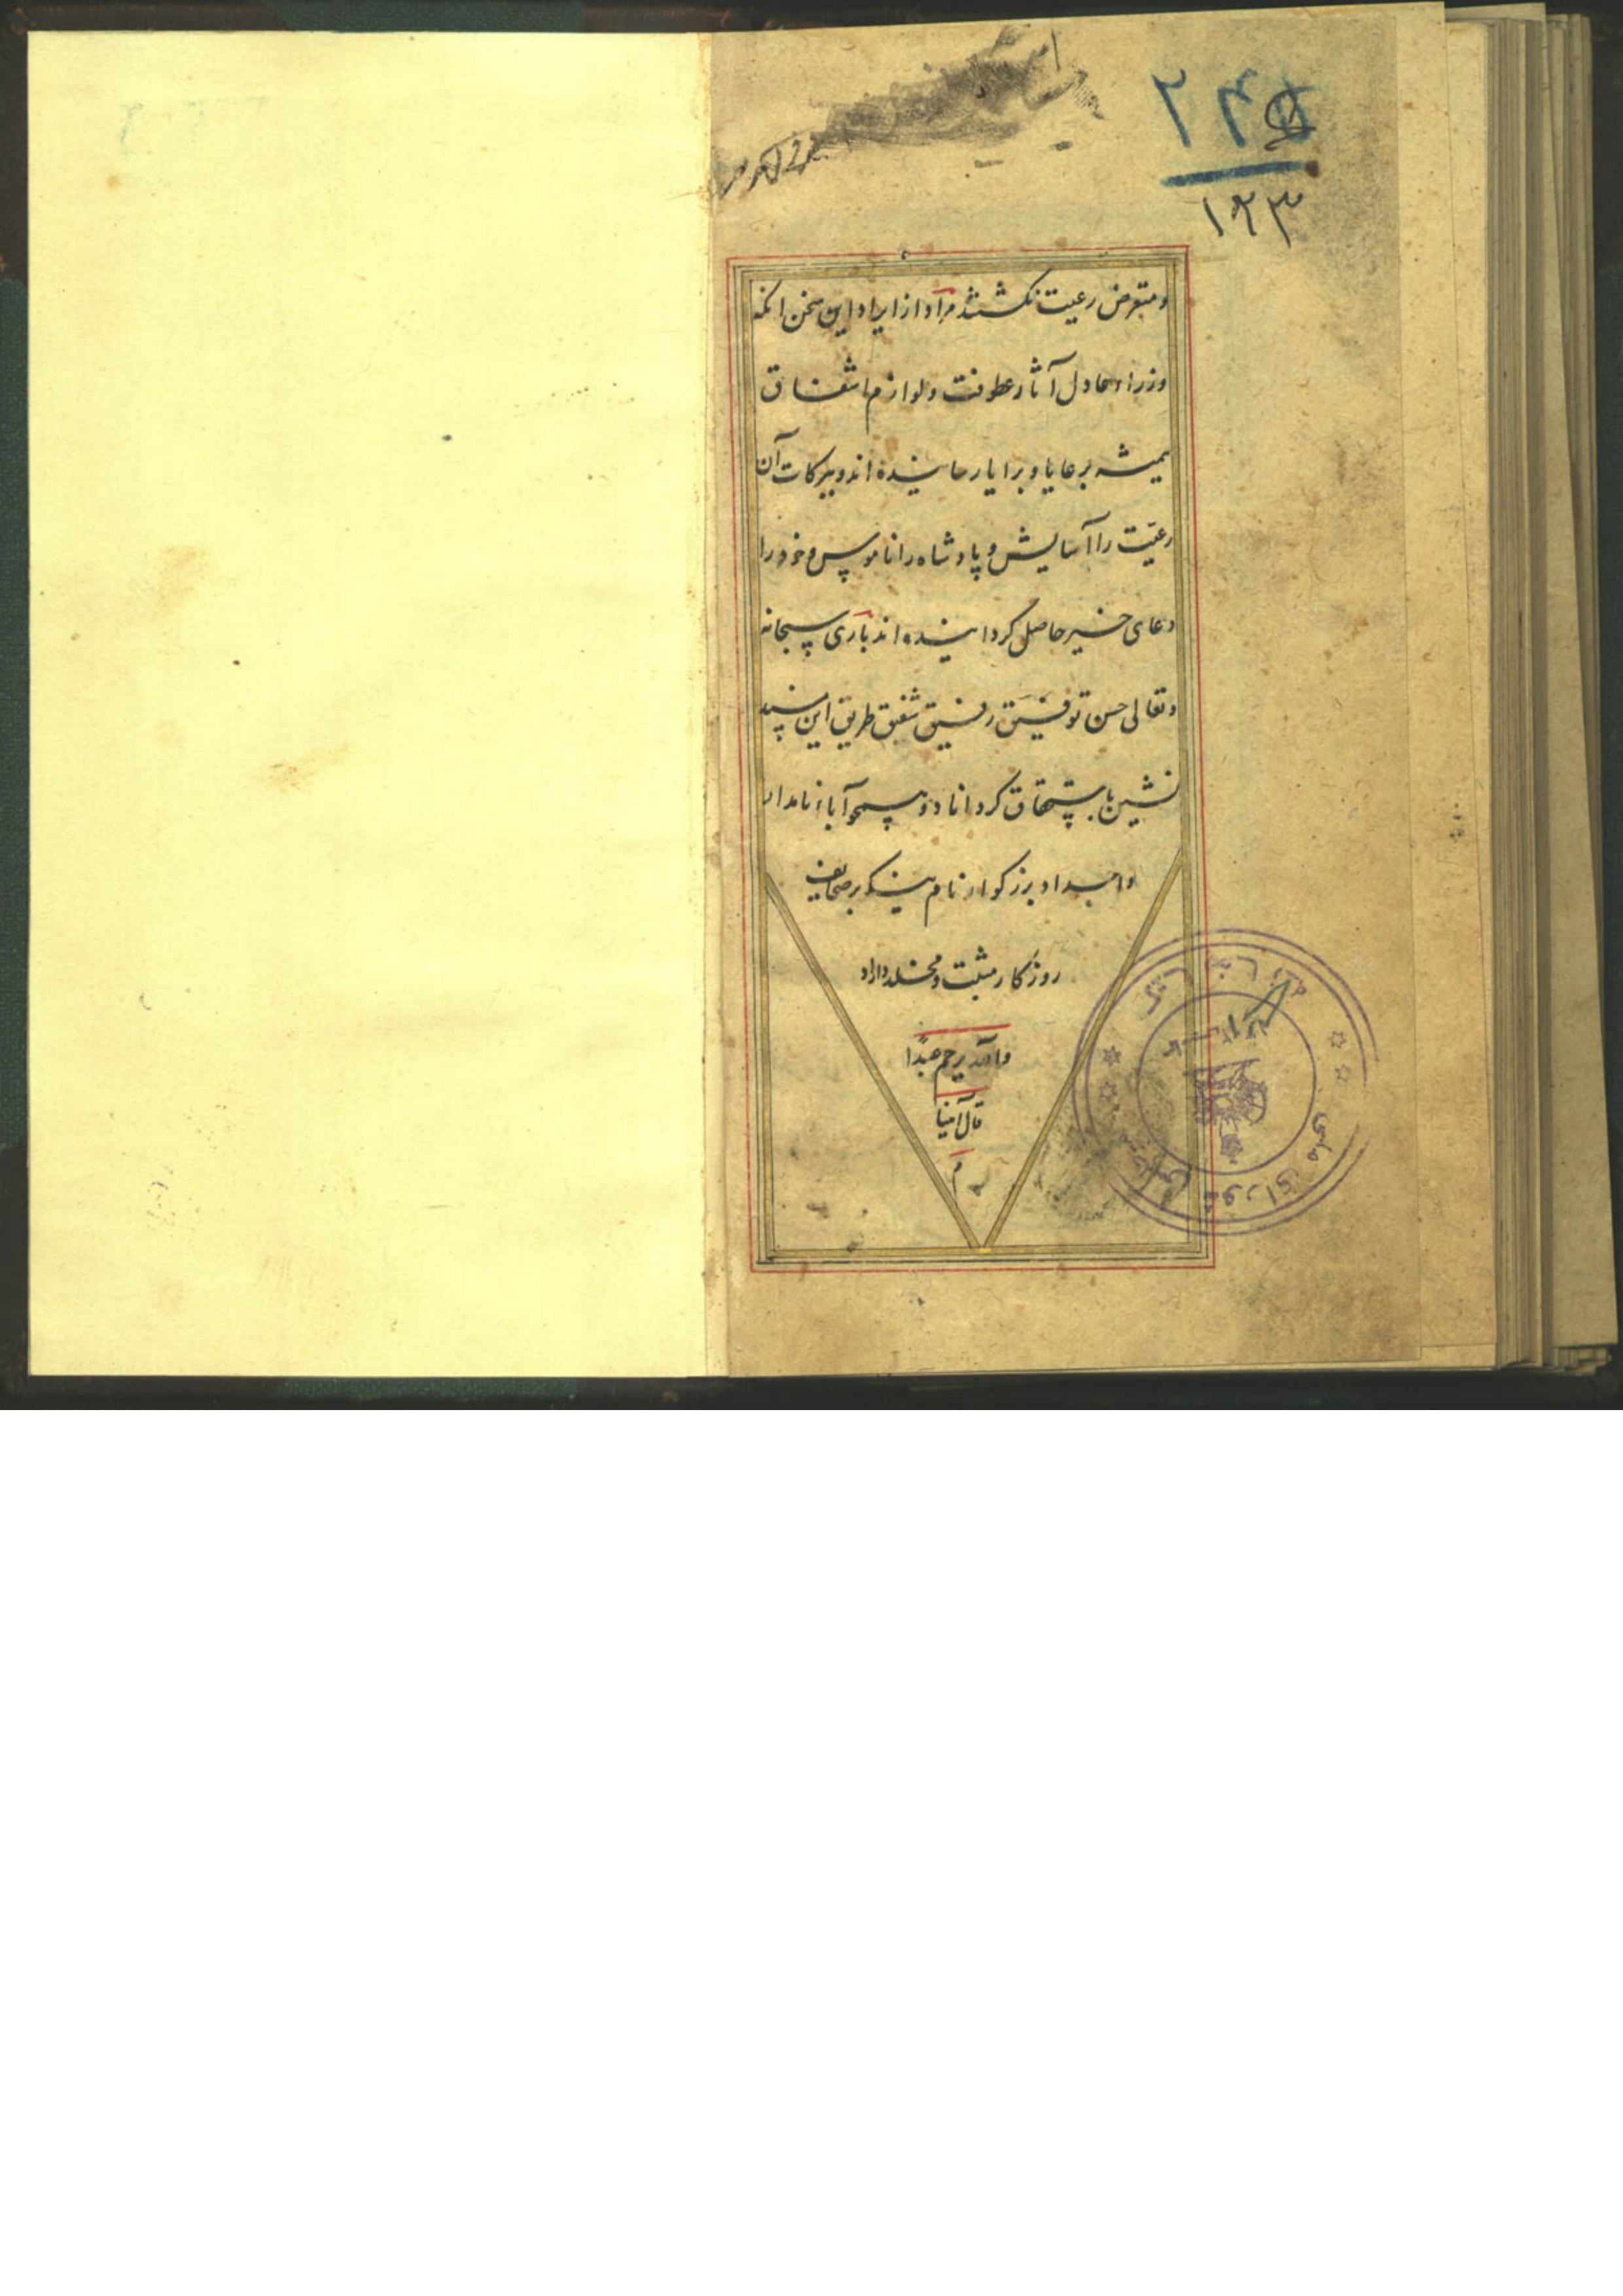 ۱۲۳
و متعرض رعیت نکشتند مراد از ایراد این سخن انکه
وزراء عادل آثار عطوفت و لوازم اشفاق
همیشه برعایا و برایا رسانیده اند و ببرکات آن
رعیت را آسایش و پادشاه را ناموس و خود را
دعای خیر حاصل کردانیده اند باری سبحانه
و تعالی حسن توفیق رفیق شفیق طریق این مسند
نشین باستحقاق کرداناد و همچو آباء نامدار
و اجداد بزرکوار نام نیکو بر صحایف
روزکار مثبت و مخلد داراد
والله یرحم عبدًا
قال آمینا
م
کتابخانه مجلس شورای ملی